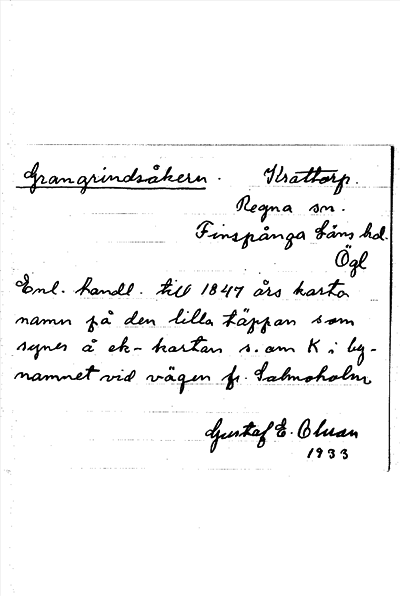 Grangrindsåkern. Krattorp.
Regna sn.
Finspånga läns hd.
Ögl
Enl. handl. till 1847 års karta
namn på den lilla täppan som
synes å ek-kartan s.om K i by-
namnet vid vägen fr. Salmoholm
Gustaf E. Olsson
1933